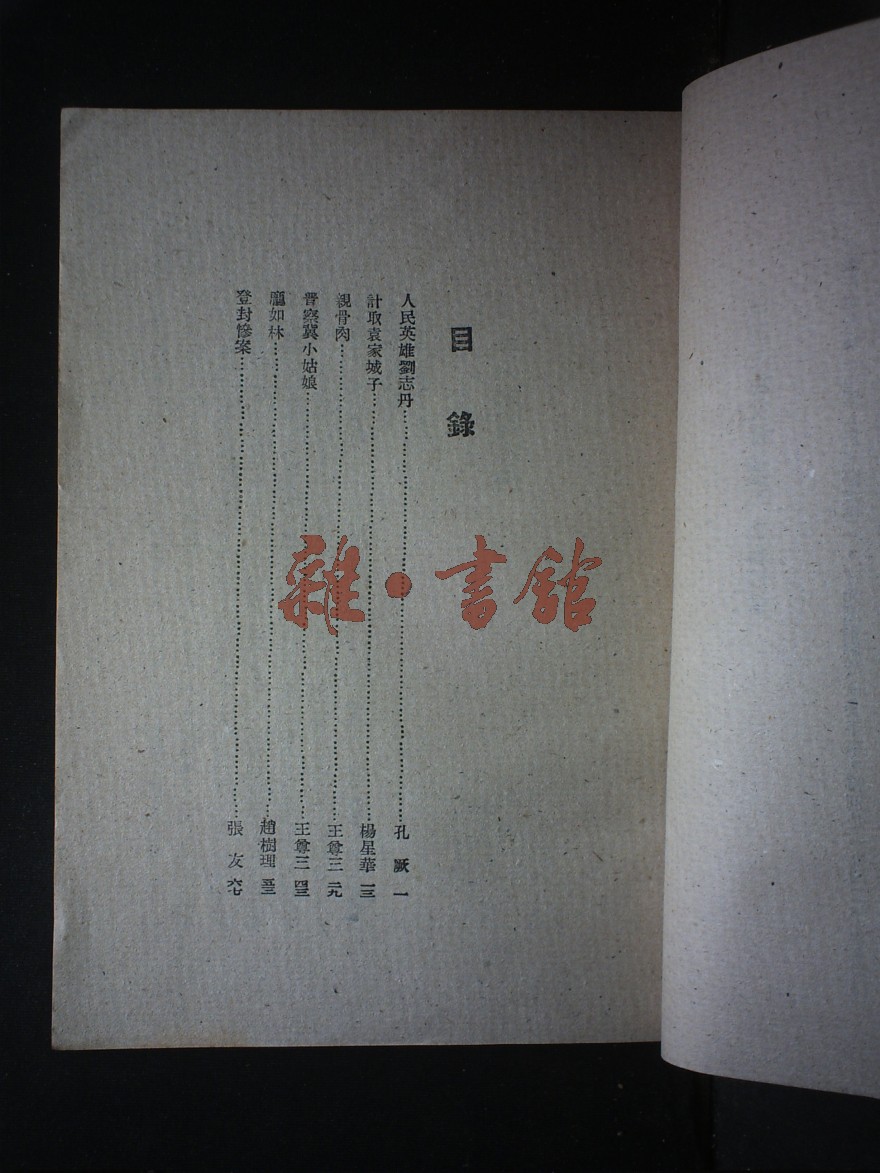 目錄
人民英雄劉志丹……孔厥 一
計取袁家城子……楊星華 一三
親骨肉……王尊三 二九
晉察冀小姑娘……王尊三 四三
龐如林……趙樹理 五三
登封慘案……張友 六七
雜·書館